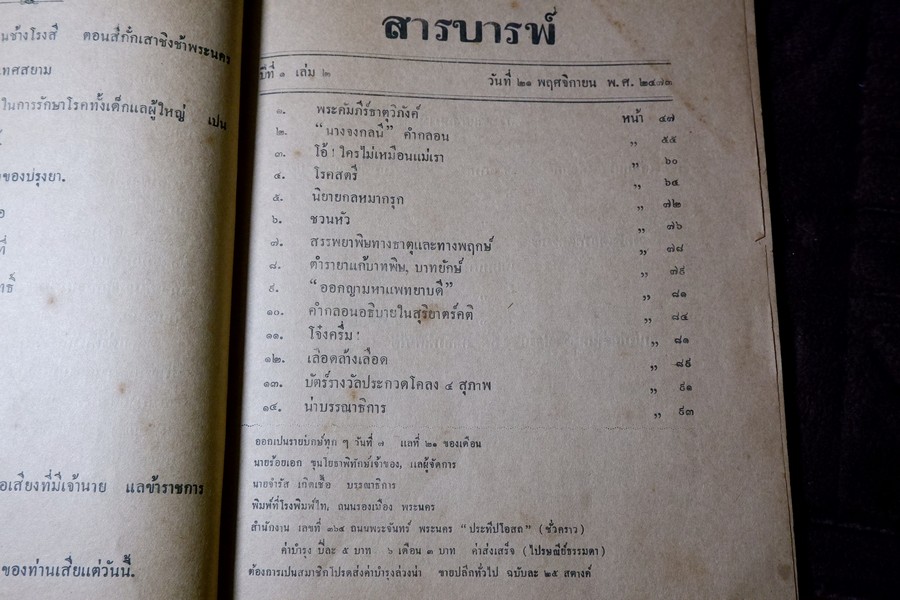 นช้างโรงสี ตอนสี่กั๊กเสาชิงช้าพระนคร
ทศสยาม
ในการรักษาโรคทั้งเด็กแลผู้ใหญ่ เปน
ของปรุงยา.
อเสียงที่มีเจ้านาย แลข้าราชการ
ของท่านเสียแต่วันนี้.
สารบารพ์
ปีที่ ๑ เล่ม ๒ วันที่ ๒๑ พฤศจิกายน พ.ศ. ๒๔๗๓
๑. พระคัมภีร์ธาตุวิภังค์ หน้า ๔๗
๒. “นางจงกลนี” คำกลอน „ ๕๕
๓. โอ้! ใครไม่เหมือนแม่เรา „ ๖๐
๔. โรคสตรี „ ๖๔
๕. นิยายกลหมากรุก „ ๗๒
๖. ชวนหัว „ ๗๖
๗. สรรพยาพิษทางธาตุและทางพฤกษ์ „ ๗๘
๘. ตำรายาแก้บาทพิษ, บาทยักษ์ „ ๗๙
๙. “ออกญามหาแพทยาบดี” „ ๘๑
๑๐. คำกลอนอธิบายในสุริยาตร์คติ „ ๘๔
๑๑. โจ๋งครึ่ม! „ ๘๑
๑๒. เลือดล้างเลือด „ ๘๙
๑๓. บัตร์รางวัลประกวดโคลง ๔ สุภาพ „ ๙๑
๑๔. น่าบรรณาธิการ „ ๙๓
ออกเปนรายปักษ์ทุก ๆ วันที่ ๗ แลที่ ๒๑ ของเดือน
นายร้อยเอก ขุนโยธาพิทักษ์เจ้าของ, แลผู้จัดการ
นายจำรัส เกิดเชื้อ บรรณาธิการ
พิมพ์ที่โรงพิมพ์ไท, ถนนรองเมือง พระนคร
สำนักงาน เลขที่ ๓๖๔ ถนนพระจันทร์ พระนคร “ประทีปโอสถ” (ชั่วคราว)
ค่าบำรุง ปีละ ๕ บาท ๖ เดือน ๓ บาท ค่าส่งเสร็จ (ไปรษณีย์ธรรมดา)
ต้องการเปนสมาชิกโปรดส่งค่าบำรุงล่วงน่า ขายปลีกทั่วไป ฉบับละ ๒๕ สตางค์